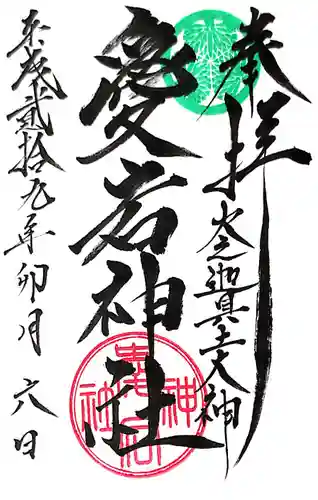 奉拝
火之迦具土大神
愛宕神社
愛宕神社
平成弐拾九年卯月六日